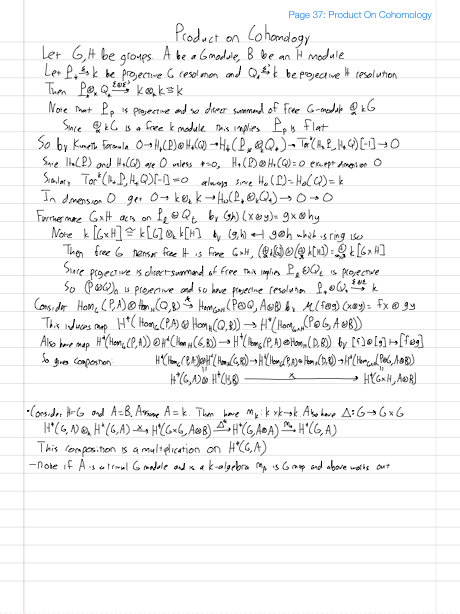 Page 37: Product On Cohomology
Product on Cohomology
Let G,H be groups. A be a G module, B be an H module
Let P_* →^ε k be projective G resolution and Q_* →^ε' k be projective H resolution
Then P_* ⊗_k Q_* →^{ε⊗ε'} k⊗_k k ≅ k
Note that P_p is projective and so direct summand of free G-module ⊕_α kG
Since ⊕_α kG is a free k module this implies P_p is flat
So by Kunneth formula 0→H_*(P)⊗H_*(Q)→H_*(P_*⊗_k Q_*)→Tor^k(H_*P, H_*Q)[-1]→0
Since H_*(P) and H_*(Q) are 0 unless *=0, H_*(P)⊗H_*(Q)=0 except dimension 0
Similarly Tor^k(H_*P, H_*Q)[-1]=0 always since H_0(P)=H_0(Q)=k
In dimension 0 get 0→k⊗_k k→H_0(P_*⊗_k Q_*)→0→0
Furthermore G×H acts on P_k⊗Q_l by (g,h)(x⊗y)=gx⊗hy
Note k[G×H]≅k[G]⊗_k k[H] by (g,h)↔g⊗h which is ring iso
Then free G tensor free H is free G×H,
Since projective is direct summand of free this implies P_k⊗Q_l is projective
So (P⊗Q)_n is projective and so have projective resolution P_*⊗Q_* →^{ε⊗ε'} k
Consider Hom_G(P,A)⊗Hom_H(Q,B) →^× Hom_{G×H}(P⊗Q, A⊗B) by (f⊗g)(x⊗y)=fx⊗gy
This induces map H^*(Hom_G(P,A)⊗Hom_H(Q,B))→H^*(Hom_{G×H}(P⊗Q,A⊗B))
Also have map H^*(Hom_G(P,A))⊗H^*(Hom_H(Q,B))→H^*(Hom_G(P,A)⊗Hom_H(Q,B)) by [f]⊗[g]↦[f⊗g]
So gives composition: H^*(Hom_G(P,A))⊗H^*(Hom_H(Q,B))→H^*(Hom_G(P,A)⊗Hom_H(Q,B))→H^*(Hom_{G×H}(P⊗Q,A⊗B))
H^*(G,A)⊗H^*(H,B) →^× H^*(G×H,A⊗B)
•Consider H=G and A=B, Assume A=k. Then have m_k: k×k→k. Also have Δ: G→G×G
H^*(G,A)⊗_k H^*(G,A) →^× H^*(G×G,A⊗A) →^{Δ^*} H^*(G,A⊗A) →^{m_*} H^*(G,A)
This composition is a multiplication on H^*(G,A)
-Note if A is a trivial G module and is a k-algebra m_A is G map and above works out